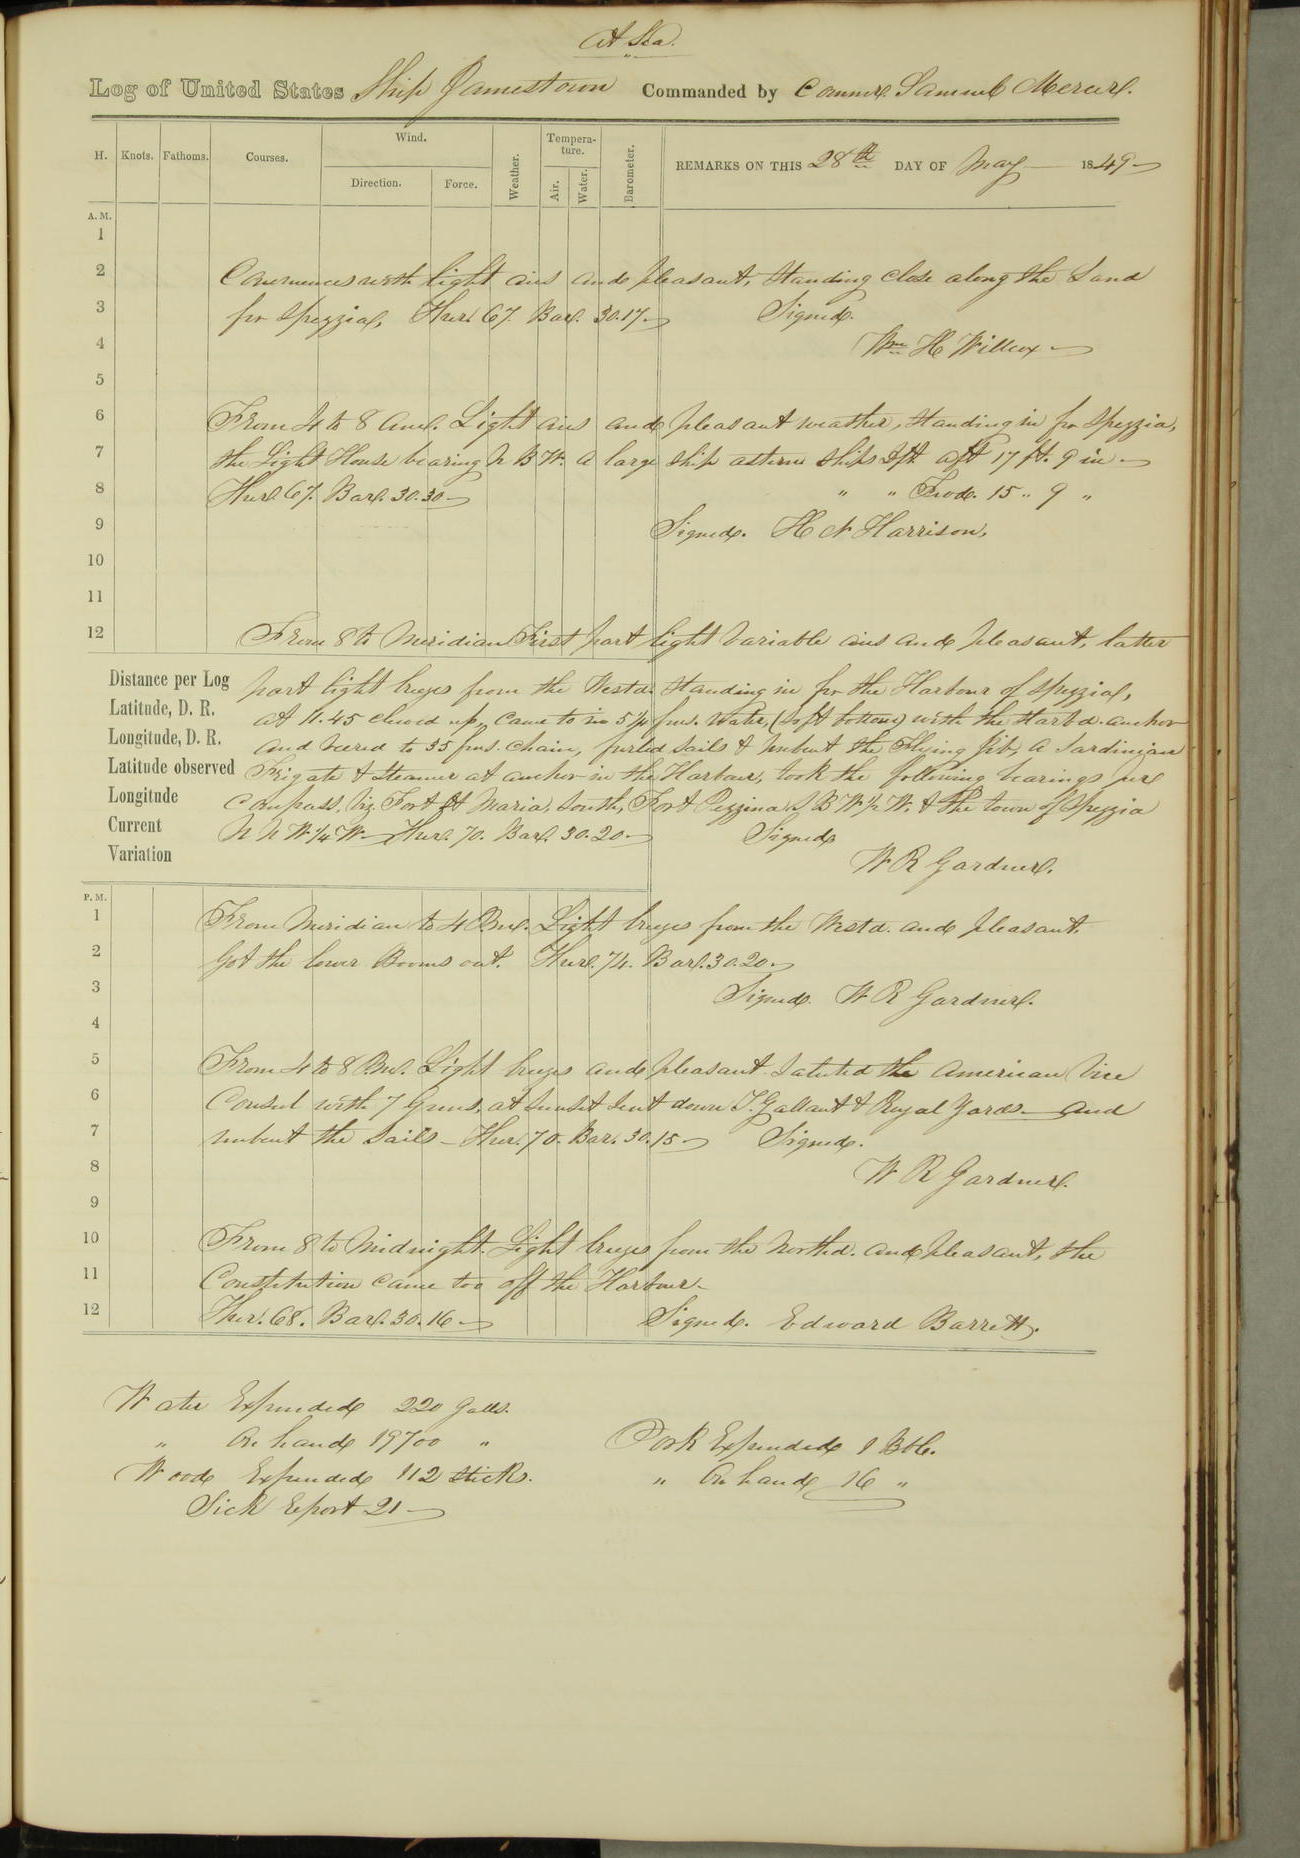 At Sea.
Log of United States Ship Jamestown Commanded by Commr. Samuel Mercer.
H. Knots. Fathoms. Courses. Wind. Direction. Force. Weather. Tempera-ture. Air. Water. Barometer. REMARKS ON THIS 28th DAY OF May 1849
A. M.
1
2 Commences with light airs and pleasant, Standing close along the Land
3 for Spezzia, Ther. 67. Bar. 30.17. Signed.
4 Wm H Willcox
5
6 From 4 to 8 Am. Light airs and pleasant weather, Standing in for Spezzia,
7 the Light House bearing N B W. A large ship astern Ships dft aft 17 ft. 9 in
8 Ther. 67. Bar. 30.30 " " Frod. 15 " 9 "
9 Signed. H N Harrison,
10
11
12 From 8 to Meridian First part light variable airs and pleasant, latter
Distance per Log part light breezes from the Westd. Standing in for the Harbour of Spezzia,
Latitude, D. R. at 11.45 clewed up, came to in 5 1/4 fms. Water, (soft bottom) with the Starbd. anchor
Longitude, D. R. and veered to 35 fms. chain, furled sails & unbent the Flying Jib, A Sardinian
Latitude observed Frigate & Steamer at anchor in the Harbour, took the following bearings per
Longitude Compass, Viz. Fort St Maria, South, Fort Pezzina S B W 1/2 W. & the town of Spezzia
Current N N W 1/4 W Ther. 70. Bar. 30.20 Signed
Variation W R Gardner.
P. M.
1 From Meridian to 4 Pm. Light breezes from the Westd. and pleasant.
2 Got the lower Booms out. Ther. 74. Bar. 30.20.
3 Signed. W R Gardner.
4
5 From 4 to 8 Pm. Light breezes and pleasant. Saluted the American Vice
6 Consul with 7 Guns, at Sunset sent down T. Gallant & Royal Yards and
7 unbent the Sails Ther. 70. Bar. 30.15 Signed.
8 W R Gardner.
9
10 From 8 to Midnight. Light breezes from the Northd. and pleasant, the
11 Constitution came too off the Harbour
12 Ther. 68. Bar. 30.16 Signed. Edward Barrett.
Water Expended 220 Galls.
" On hand 19700 "
Wood Expended 112 sticks.
Sick Report 21
Pork Expended 1 Bbl.
" On hand 16 "